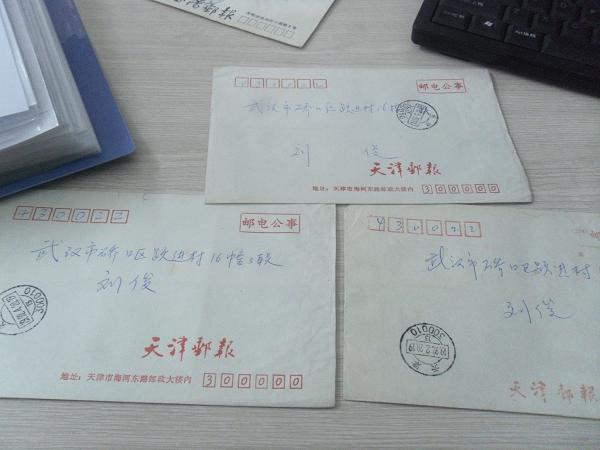 邮報
430022
邮电公事
武汉市硚口区跃进村16幢
刘俊
天津郵報
地址:天津市海河东路邮政大楼内 300000
430022
邮电公事
武汉市硚口区跃进村16幢2联
刘俊
天津郵報
地址:天津市海河东路邮政大楼内 300000
300010
430022
武汉市硚口区跃进村1
刘俊
天津郵報
300010